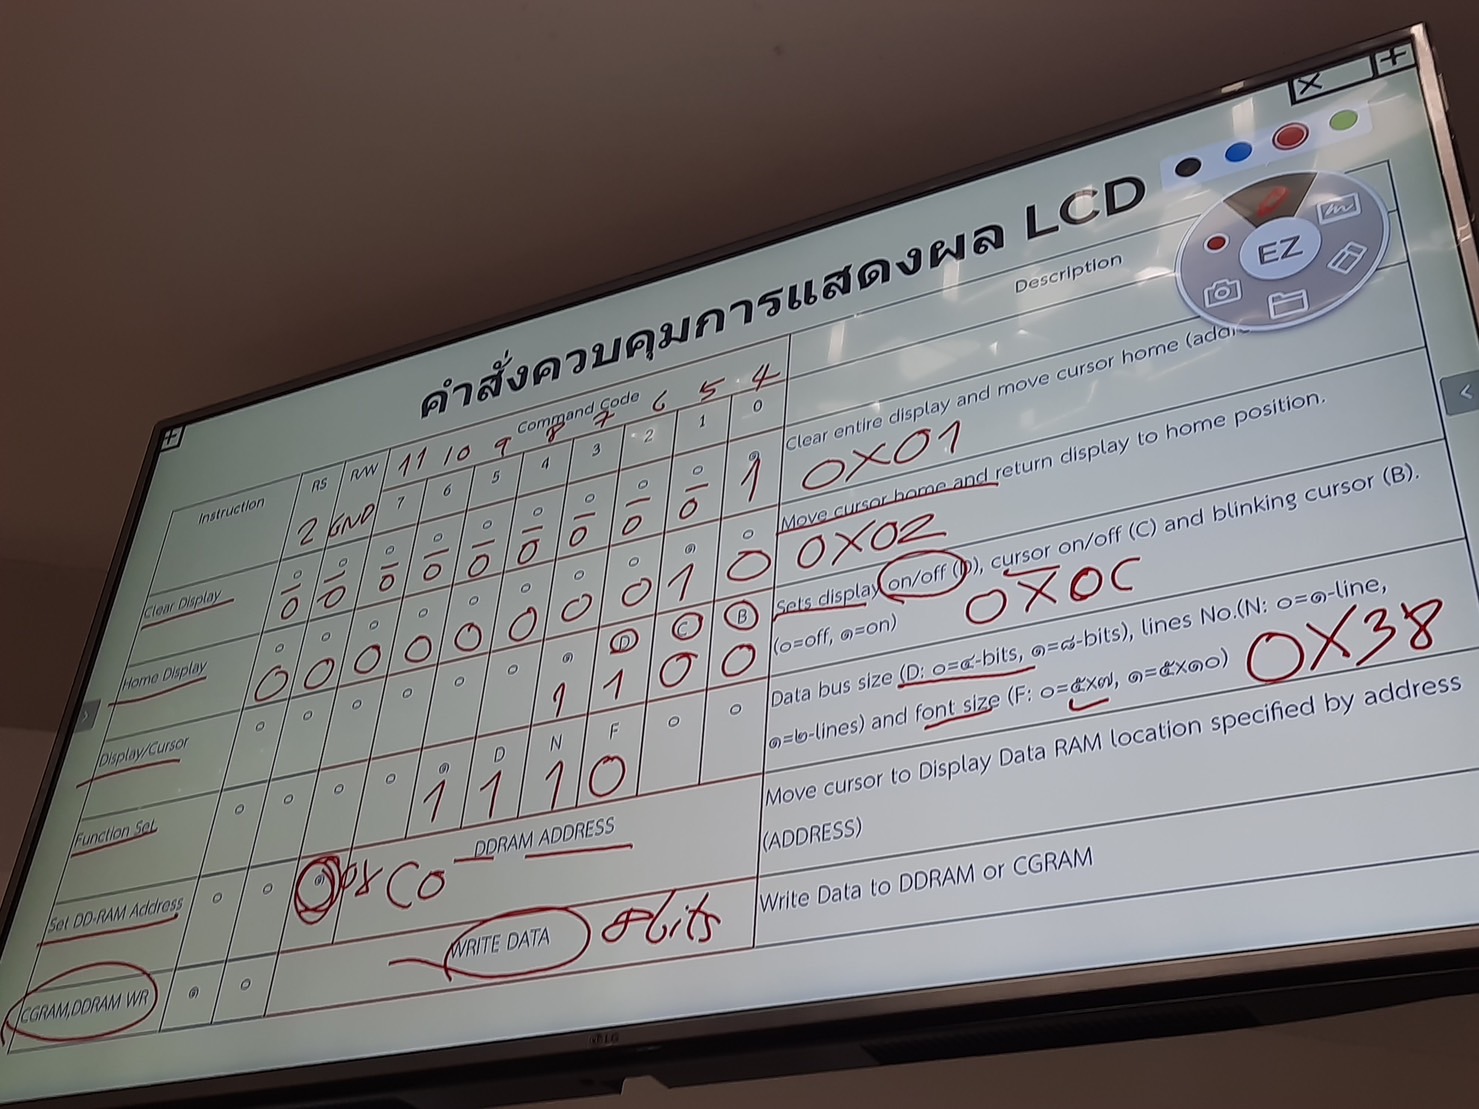 คำสั่งควบคุมการแสดงผล LCD
EZ
Instruction RS R/W Command Code Description
11 10 9 8 7 6 5 4
2 GND 7 6 5 4 3 2 1 0
Clear Display ๐ ๐ ๐ ๐ ๐ ๐ ๐ ๐ ๐ ๑ Clear entire display and move cursor home
0 0 0 0 0 0 0 0 0 1 0X01
Home Display ๐ ๐ ๐ ๐ ๐ ๐ ๐ ๐ ๑ ๐ Move cursor home and return display to home position.
0 0 0 0 0 0 0 0 1 0 0X02
Display/Cursor ๐ ๐ ๐ ๐ ๐ ๐ ๑ D C B Sets display on/off (D), cursor on/off (C) and blinking cursor (B).
1 1 0 0 (๐=off, ๑=on) 0X0C
Function Set ๐ ๐ ๐ ๐ ๑ D N F ๐ ๐ Data bus size (D: ๐=๔-bits, ๑=๘-bits), lines No.(N: ๐=๑-line,
1 1 1 0 ๑=๒-lines) and font size (F: ๐=๕x๗, ๑=๕x๑๐) 0X38
Set DD-RAM Address ๐ ๐ ๑ DDRAM ADDRESS Move cursor to Display Data RAM location specified by address
0x C0 (ADDRESS)
CGRAM,DDRAM WR ๑ ๐ WRITE DATA 8bits Write Data to DDRAM or CGRAM
LG